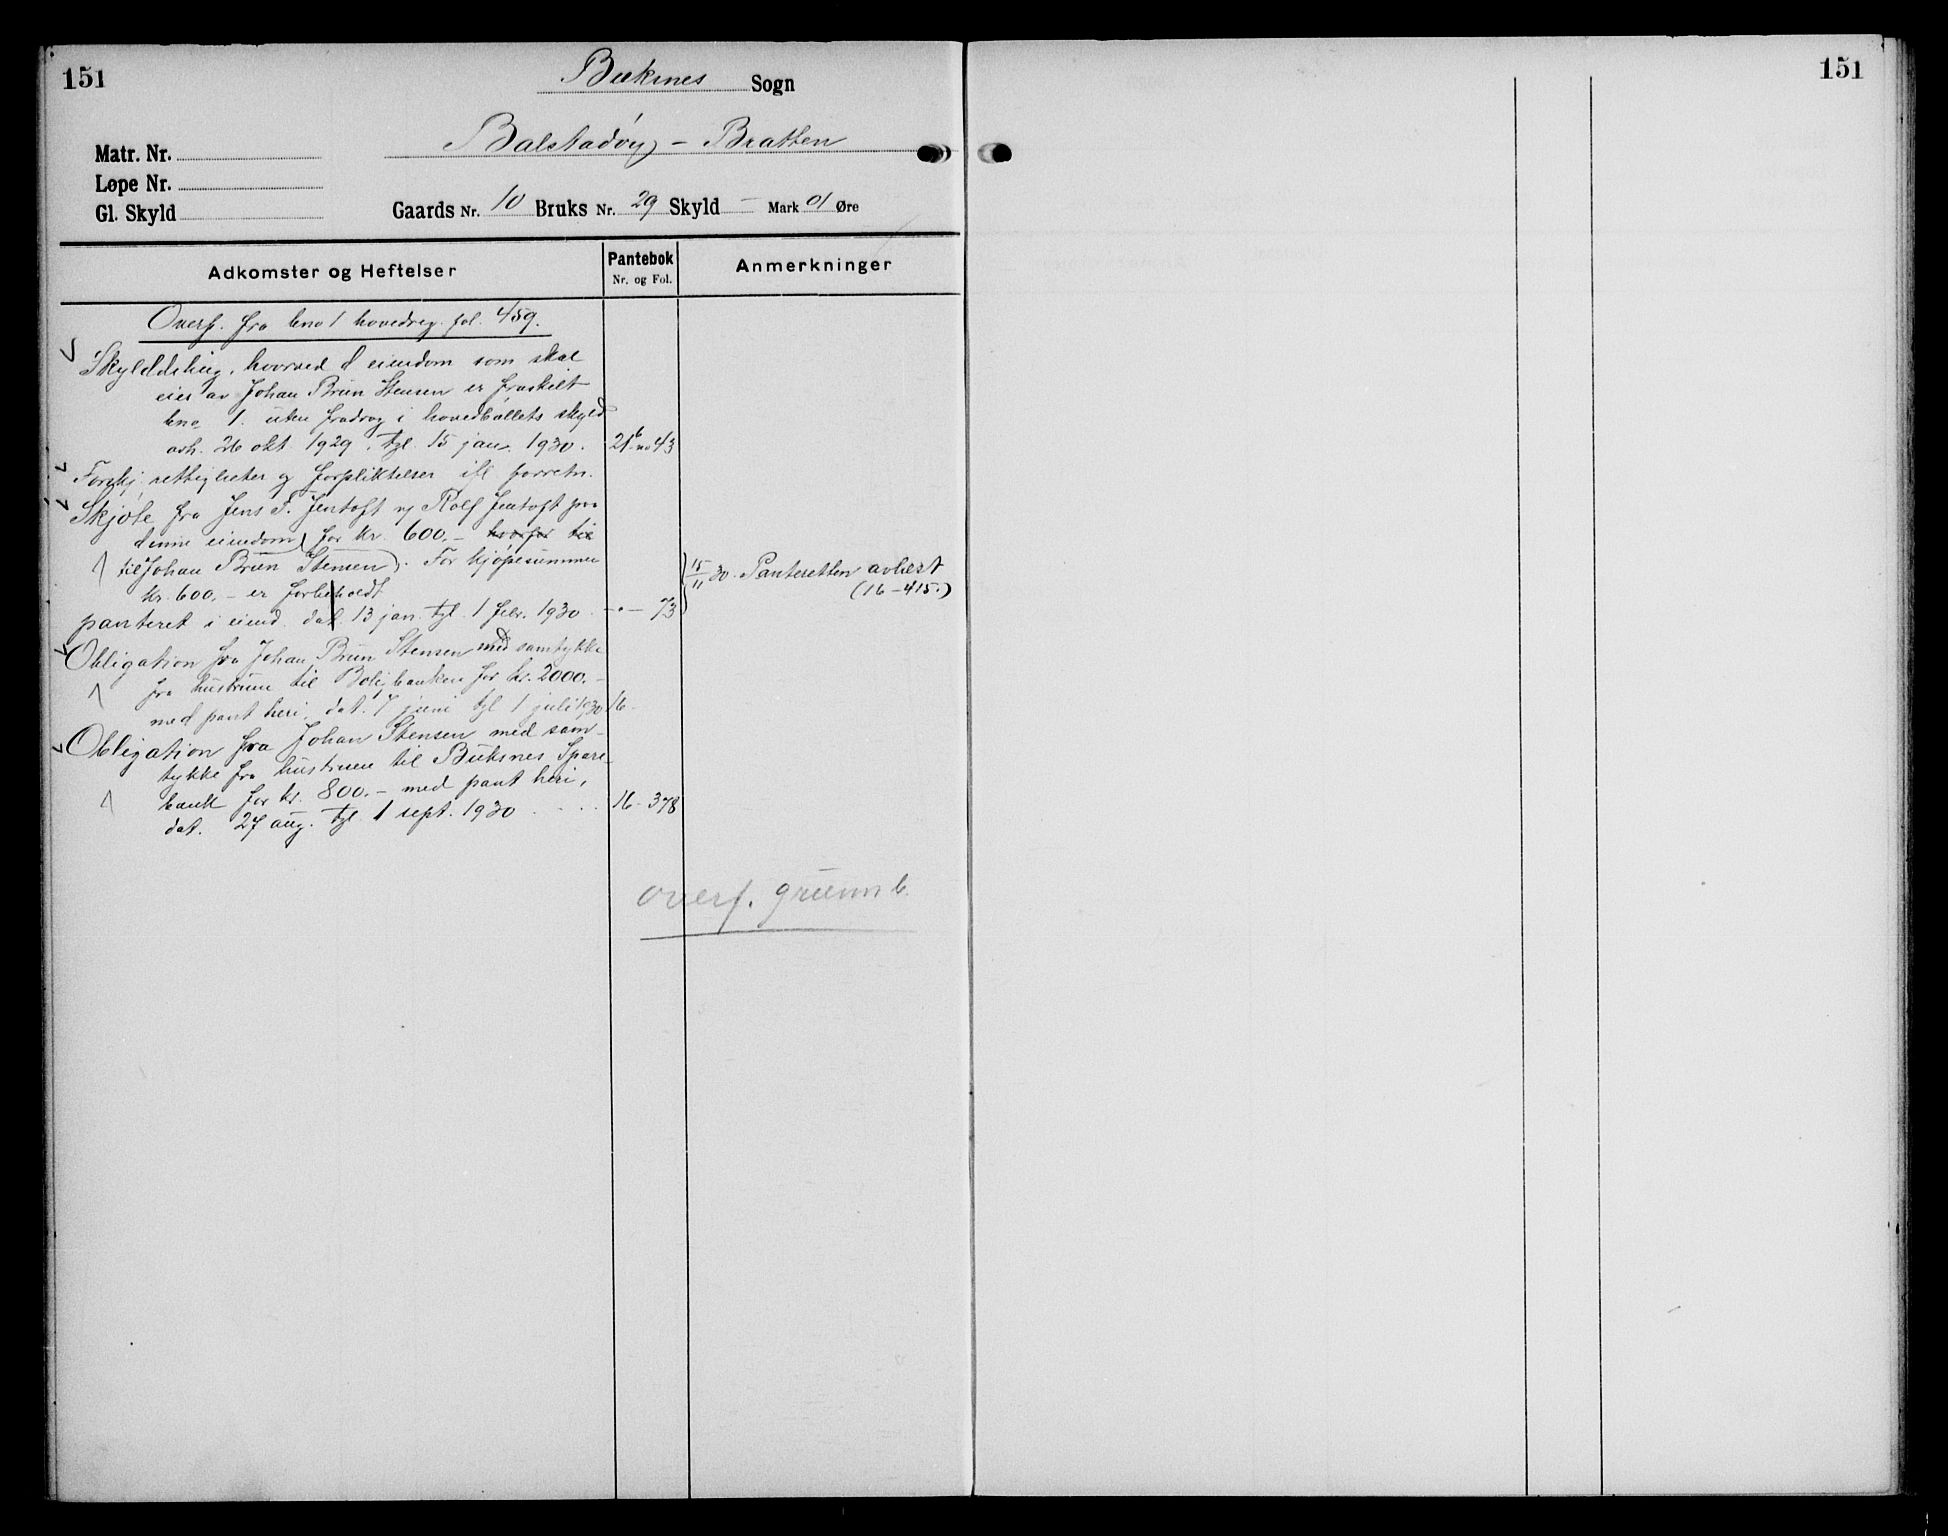 151
Buksnes Sogn
Balstadøy - Bratten
Matr. Nr.
Løpe Nr.
Gl. Skyld
Gaards Nr. 10 Bruks Nr. 29 Skyld - Mark 01 Øre
Adkomster og Heftelser
Pantebok
Nr. og Fol.
Anmerkninger
Overf. fra bno 1 hovedreg. fol. 459.
Skylddeling, hvorved d eiendom som skal
eies av Johan Brun Stensen er fraskilt
bno 1. uten fradrag i hovedbøllets skyld
avh. 26 okt 1929. tgl. 15 jan. 1930. 21b no 43
Forskj. rettigheter og forpliktelser ifl forretn.
Skjøte fra Jens F. Jentoft og Rolf Jentoft paa
denne eiendom for kr. 600.- hvorfor til
til Johan Brun Stensen). For kjøpesummen
kr. 600.- er forbeholdt
panteret i eiend. dat. 13 jan. tgl. 1 febr. 1930. -"- 73
15/11 30. Panteretten avlæst
(16-415.)
Obligation fra Johan Brun Stensen med samtykke
fra hustruen til Boligbanken for kr. 2000.-
med pant heri, dat. 7 juni tgl 1 juli 1930 16-
Obligation fra Johan Stensen med sam-
tykke fra hustruen til Buksnes Spare-
bank for kr. 800.- med pant heri,
dat. 27 aug. tgl 1 sept. 1930 . . . . 16- 378
overf. grunnb.
151